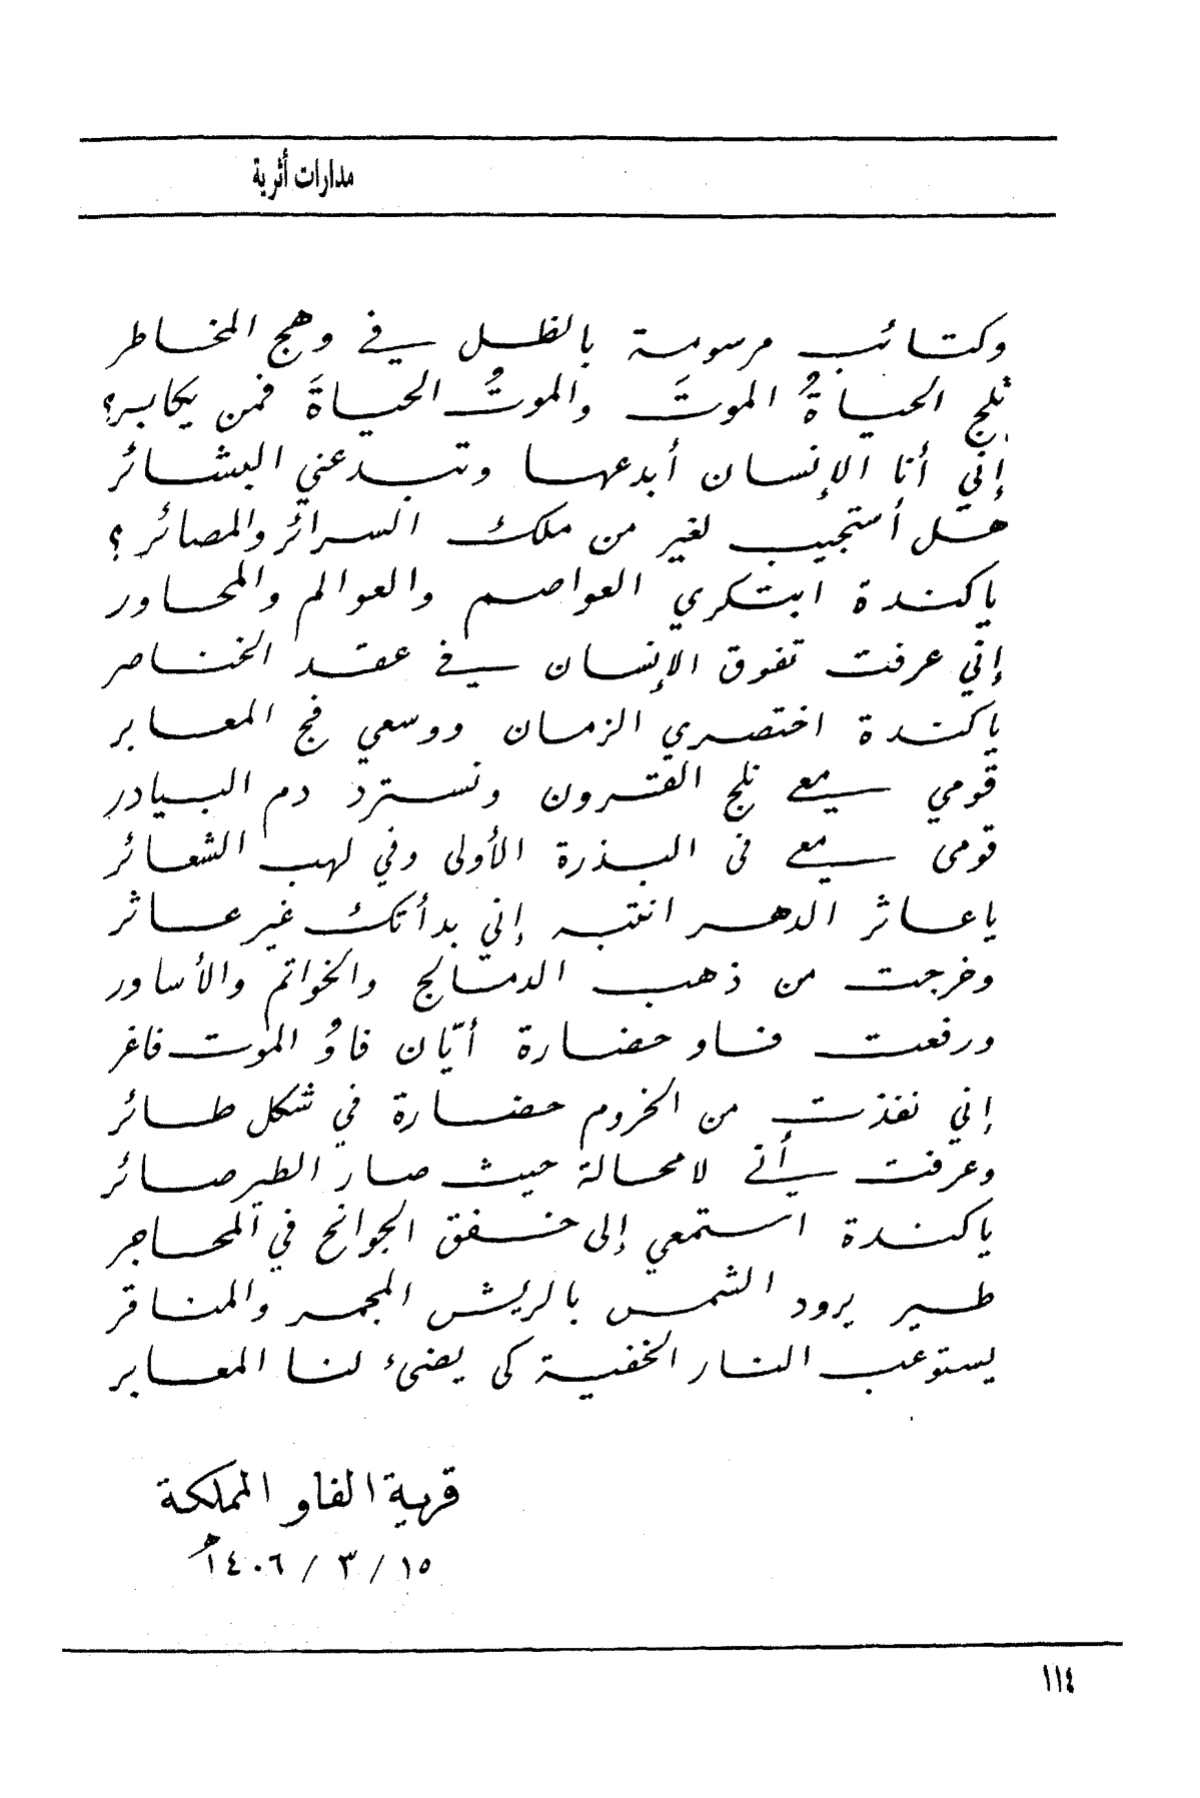 مدارات أثرية
وكتائب مرسومة بالظل في وهج المخاطر
تلج الحياةُ الموتَ والموتُ الحياةَ فمن يكابر؟
إني أنا الإنسان أبدعها وتبدعني البشائر
هل أستجيب لغير من ملك السرائر والمصائر ؟
ياكندة ابتكري العواصم والعوالم والمحاور
إني عرفت تفوق الإنسان في عقد الخناصر
ياكندة اختصري الزمان ووسعي فج المعابر
قومي معي نلج القرون ونسترد دم البيادر
قومى معي فى البذرة الأولى وفي لهب الشعائر
ياعاثر الدهر انتبه إني بدأتك غير عاثر
وخرجت من ذهب الدمالج والخواتم والأساور
ورفعت فاو حضارة أيّان فاوُ الموت فاغر
إني نفذت من الخروم حضارة في شكل طائر
وعرفت أني لامحالة حيث صار الطير صائر
ياكندة استمعي إلى خفق الجوانح في المحاجر
طير يرود الشمس بالريش المجمر والمناقر
يستوعب النار الخفية كى يضىء لنا المعابر
قرية الفاو المملكة
١٥ / ٣ / ١٤٠٦هـ
١١٤